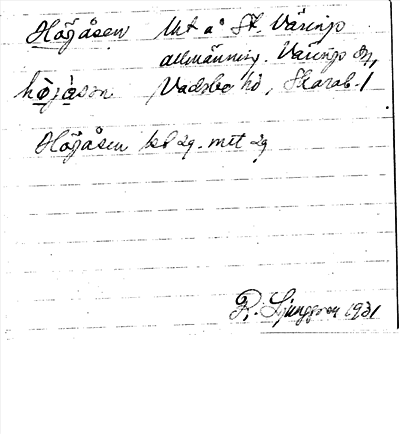 Högåsen Utt å St. Väringe
allmänning. Väringe sn,
högåsen Vadsbo hd, Skarab. l
Högåsen
R. Ljunggren 1931